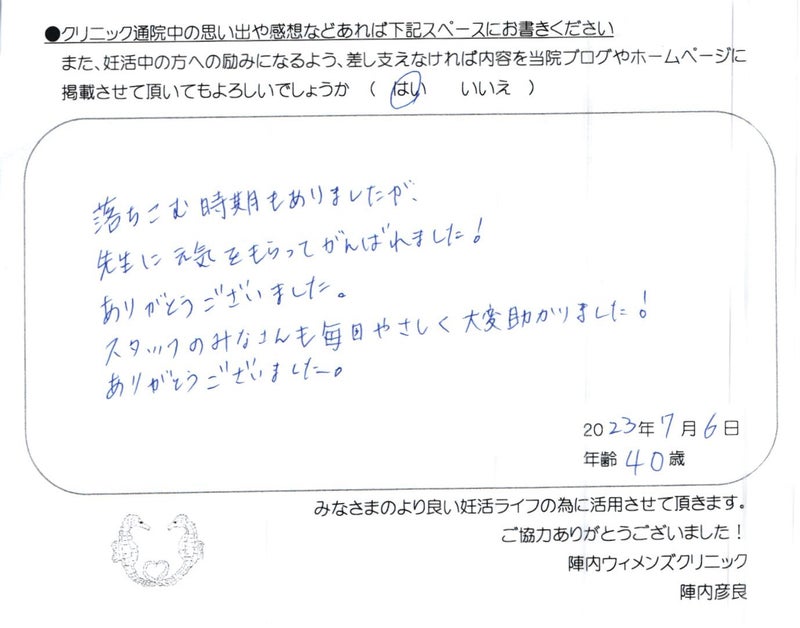 ●クリニック通院中の思い出や感想などあれば下記スペースにお書きください
また、妊活中の方への励みになるよう、差し支えなければ内容を当院ブログやホームページに
掲載させて頂いてもよろしいでしょうか （ はい　いいえ ）
落ちこむ時期もありましたが、
先生に元気をもらってがんばれました！
ありがとうございました。
スタッフのみなさんも毎回やさしく大変助かりました！
ありがとうございました。
2023年7月6日
年齢40歳
みなさまのより良い妊活ライフの為に活用させて頂きます。
ご協力ありがとうございました！
陣内ウィメンズクリニック
陣内彦良